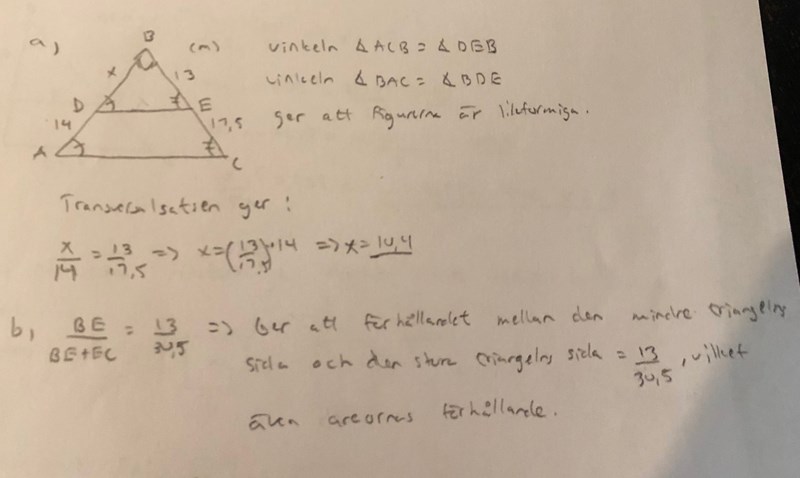 a) B (m) vinkeln ∡ACB = ∡DEB
x 13 vinkeln ∡BAC = ∡BDE
D E ger att figurerna är likformiga.
14 17,5
A C
Transversalsatsen ger:
x/14 = 13/17,5 => x = (13/17,5)·14 => x = 10,4
b) BE/(BE+EC) = 13/30,5 => Ger att förhållandet mellan den mindre triangelns
sida och den stora triangelns sida = 13/30,5, vilket
även areornas förhållande.